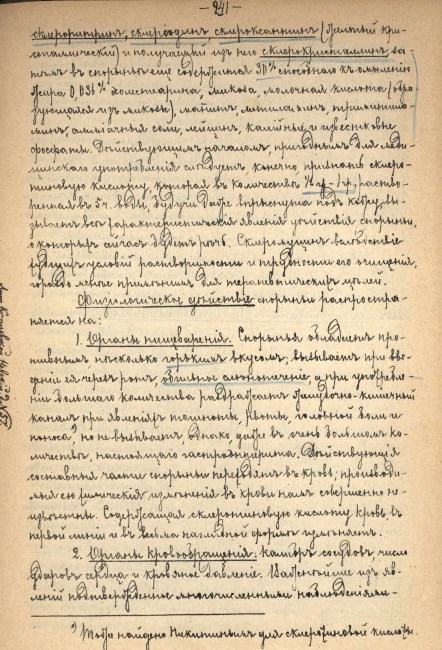 — 241 —
склероритринъ, склеројодинъ, склероксантинъ (желтый кри-
сталлическій) и получаемый изъ него склерокристаллинъ, за-
тѣмъ въ спорыньѣ еще содержится 30% способнаго къ омыленію
жира, 0,036% холестеарина, микоза, молочная кислота (обра-
зующаяся изъ микозы), маннитъ, метиламинъ, триметила-
минъ, амміачныя соли, лейцинъ, калійные и известковые
фосфаты. Дѣйствующимъ началомъ, пригоднымъ для меди-
цинскаго употребленія слѣдуетъ, конечно признать склеро-
тиновую кислоту, которая въ количествѣ ½ gr – 1 gr, раство-
ренная въ 5 ч. воды, будучи даже впрыснута подъ кожу, вы-
зываетъ всѣ характеристическія явленія дѣйствія спорыньи,
о которыхъ сейчасъ будетъ рѣчь. Склеромуцинъ вслѣдствіе
худшихъ условій растворимости и трудности его очищенія,
гораздо менѣе примѣнимъ для терапевтическихъ цѣлей.
Физіологическое дѣйствіе спорыньи распростра-
няется на:
1. Органы пищеваренія. Спорынья обладаетъ про-
тивнымъ нѣсколько горькимъ вкусомъ; вызываетъ при вве-
деніи ея черезъ ротъ, обильное слюнотеченіе, а при употребле-
ніи большаго количества раздражаетъ желудочно-кишечный
каналъ при явленіяхъ тошноты, рвоты, головной боли и
поноса*), но не вызываетъ однако, даже въ очень большомъ ко-
личествѣ, настоящаго гастроэнтерита. Дѣйствующія
составныя части спорыньи переходятъ въ кровь; производи-
мыя ею химическія измѣненія въ крови намъ совершенно не-
извѣстны. Содержащая склеротиновую кислоту кровь, въ
первой линіи и въ весьма наглядной формѣ измѣняетъ.
2. Органы кровообращенія: калибръ сосудовъ, число
ударовъ сердца и кровяное давленіе. Важнѣйшіе изъ яв-
леній подтвержденные многочисленными наблюденіями-
*) Тоже найдено Никитинымъ для склеротиновой кислоты.